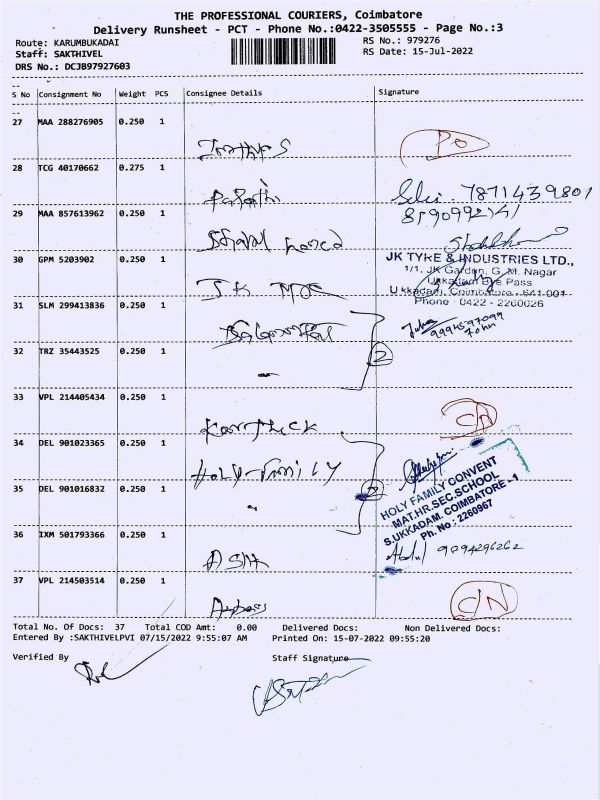 THE PROFESSIONAL COURIERS, Coimbatore
Delivery Runsheet - PCT - Phone No.:0422-3505555 - Page No.:3
Route: KARUMBUKADAI
RS No.: 979276
Staff: SAKTHIVEL
RS Date: 15-Jul-2022
DRS No.: DCJB97927603
S No Consignment No Weight PCS Consignee Details Signature
27 MAA 288276905 0.250 1
28 TCG 40170662 0.275 1
7871439801
29 MAA 857613962 0.250 1
30 GPM 5203902 0.250 1
JK TYRE & INDUSTRIES LTD.,
1/1, JK Garden, G. M. Nagar
Ukkadam Bye Pass
Ukkadam, Coimbatore - 641 001
Phone : 0422 - 2260026
31 SLM 299413836 0.250 1
9994597099
John
32 TRZ 35443525 0.250 1
2
33 VPL 214405434 0.250 1
Karthick
34 DEL 901023365 0.250 1
HOLY-FAMILY
HOLY FAMILY CONVENT
MAT.HR.SEC.SCHOOL
S.UKKADAM. COIMBATORE - 1
Ph. No : 2260967
35 DEL 901016832 0.250 1
36 IXM 501793366 0.250 1
Abdul 9094296262
37 VPL 214503514 0.250 1
Total No. Of Docs: 37 Total COD Amt: 0.00 Delivered Docs: Non Delivered Docs:
Entered By :SAKTHIVELPVI 07/15/2022 9:55:07 AM Printed On: 15-07-2022 09:55:20
Verified By Staff Signature